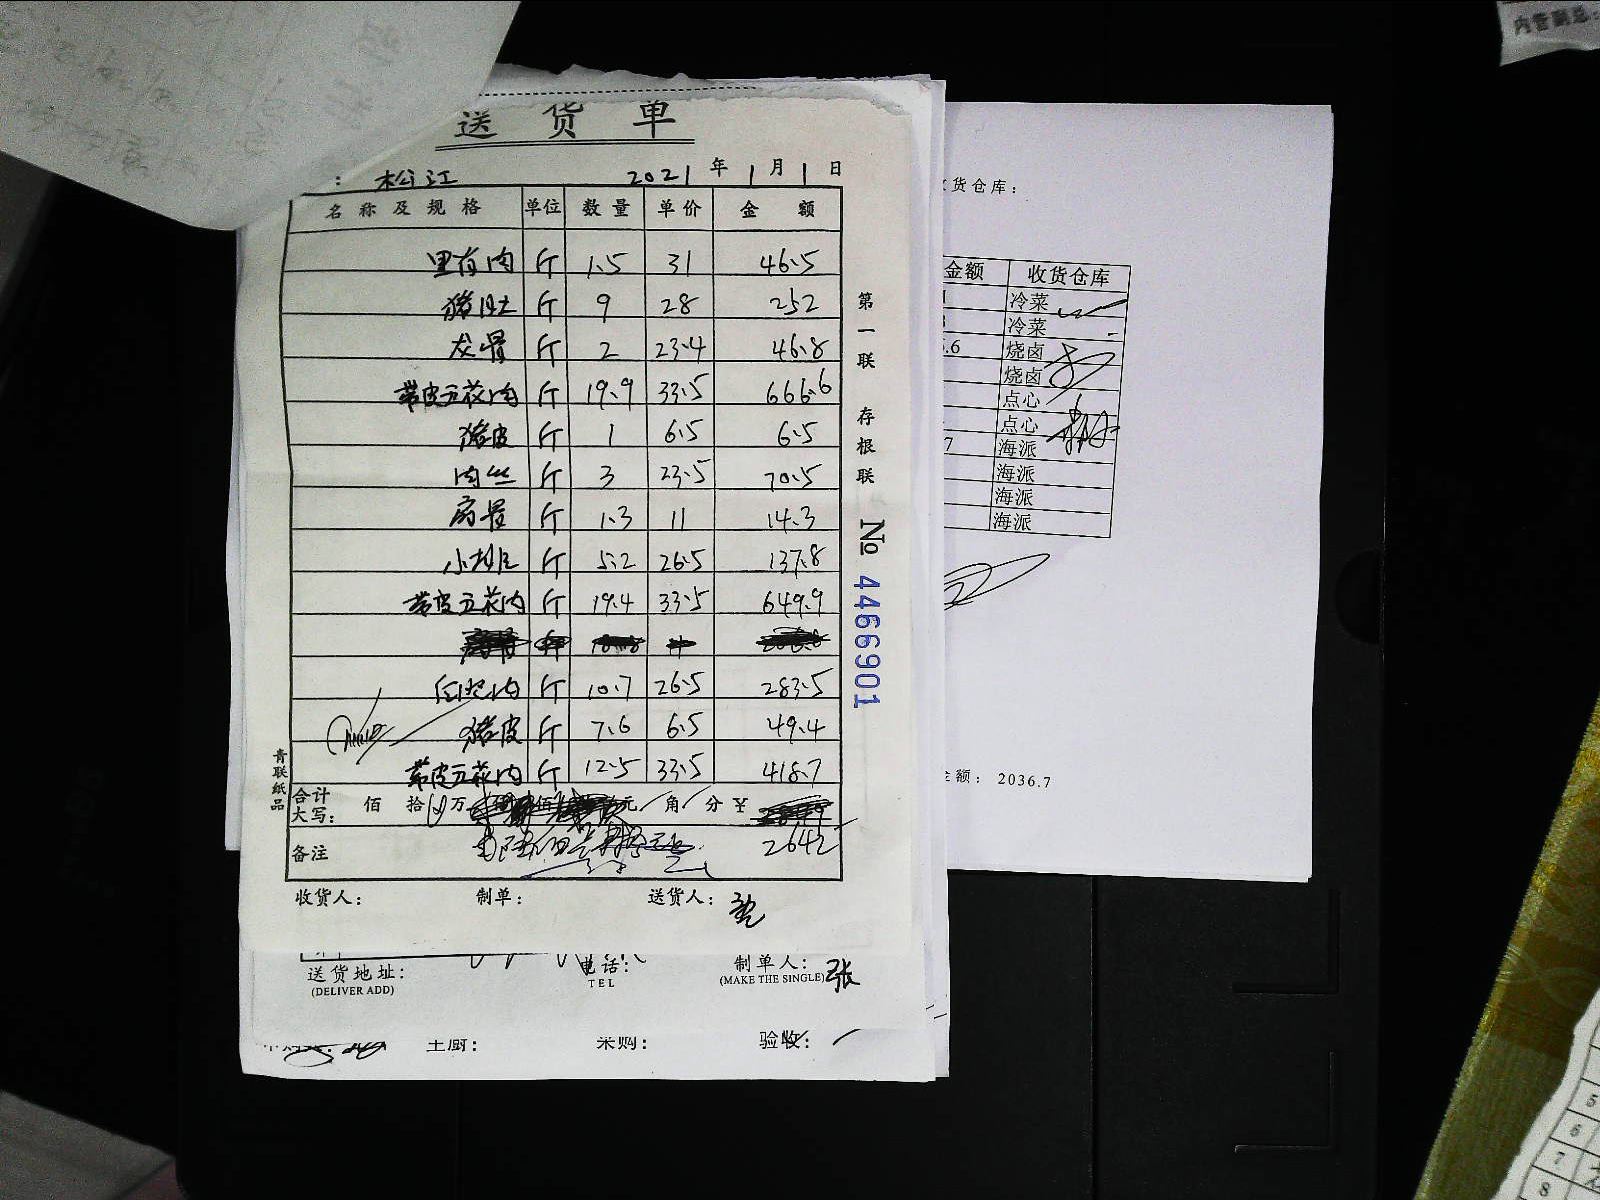 内管
送货单
: 松江 2021 年 1 月 1 日
名称及规格 单位 数量 单价 金额
里有肉 斤 1.5 31 46.5
猪肚 斤 9 28 252
龙骨 斤 2 23.4 46.8
带皮五花肉 斤 19.9 33.5 666.6
猪皮 斤 1 6.5 6.5
肉丝 斤 3 23.5 70.5
扇骨 斤 1.3 11 14.3
小排 斤 5.2 26.5 137.8
带皮五花肉 斤 19.4 33.5 649.9
肉 斤 10.7 26.5 283.5
猪皮 斤 7.6 6.5 49.4
带皮五花肉 斤 12.5 33.5 418.7
合计大写: 佰 拾 万 佰 元 角 分 ¥
备注 2642
收货人: 制单: 送货人:
第一联 存根联
№ 4466901
青联纸品
送货地址: 电话: 制单人: 张
(DELIVER ADD) TEL (MAKE THE SINGLE)
主厨: 采购: 验收:
货仓库:
金额 收货仓库
冷菜
冷菜
.6 烧卤
烧卤
点心
点心
7 海派
海派
海派
海派
额: 2036.7
5
6
7
8